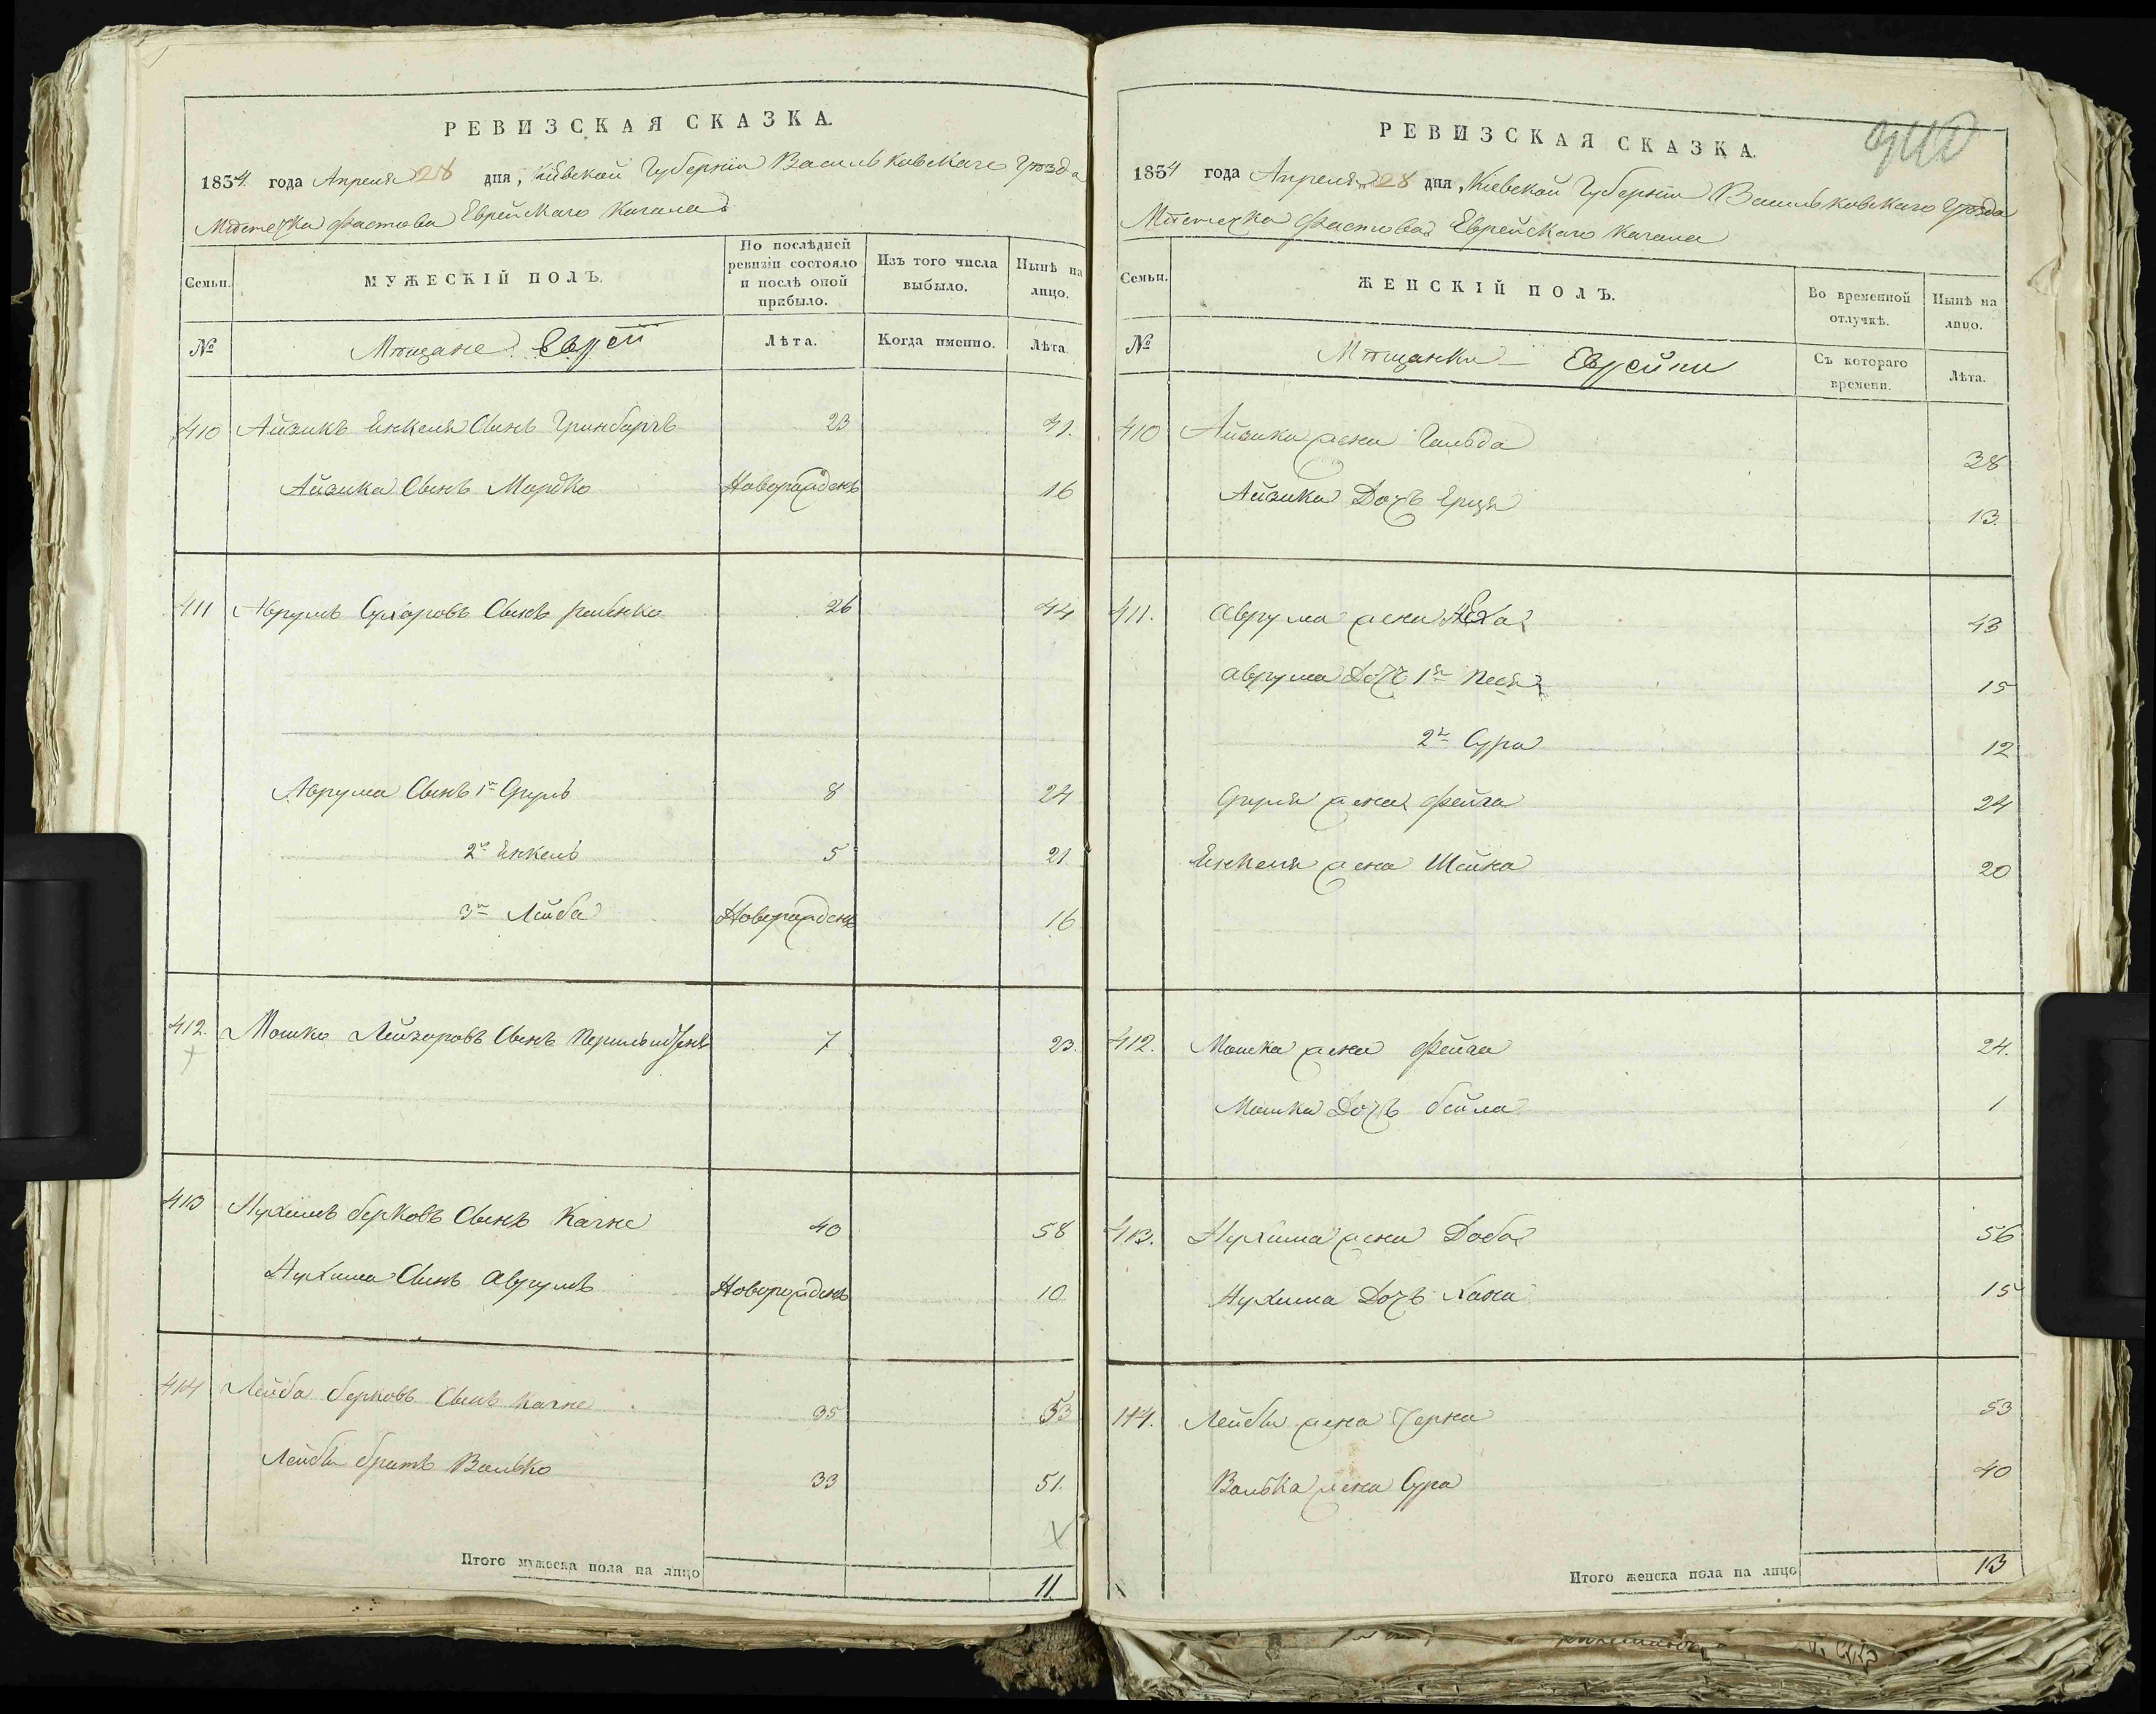 РЕВИЗСКАЯ СКАЗКА.
1834 года Апреля 28 дня, Кіевской Губерніи Васильковскаго Уѣзда
Мѣстечка Фастова Еврейскаго Кагала
Семьи.
МУЖЕСКІЙ ПОЛЪ.
По послѣдней ревизіи состояло и послѣ оной прибыло.
Изъ того числа выбыло.
Нынѣ на лицо.
№
Мѣщане Евреи
Лѣта.
Когда именно.
Лѣта.
410 Айзикъ Енкеля Сынъ Гринбаргъ 23 41.
Айзика Сынъ Мордко Новорожденъ 16
411 Аврумъ Сухаровъ Сынъ 26 44
Аврума Сынъ 1й Срулъ 8 24
2й Енкель 5 21
3й Лейба Новорожденъ 16
412. Мошко Лейзоровъ Сынъ 7 23.
413 Нухимъ Берковъ Сынъ Кагне 40 58
Нухима Сынъ Аврумъ Новорожденъ 10
414 Лейба Берковъ Сынъ Кагне 35 53
Лейбы братъ Волько 33 51.
Итого мужеска пола на лицо 11
РЕВИЗСКАЯ СКАЗКА.
1834 года Апреля 28 дня, Кіевской Губерніи Васильковскаго Уѣзда
Мѣстечка Фастова Еврейскаго Кагала
Семьи.
ЖЕНСКІЙ ПОЛЪ.
Во временной отлучкѣ.
Нынѣ на лицо.
№
Мѣщанки Еврейки
Съ котораго времени.
Лѣта.
410 Айзика жена Гольда 38
Айзика Дочь 13.
411. Аврума жена 43
Аврума Дочь 1я Песя 15
2я Сура 12
Сруля жена Фейга 24
Енкеля жена Шейна 20
412. Мошка жена Фейга 24.
Мошка Дочь Бейла 1
413. Нухима жена Доба 56
Нухима Дочь Хана 15
414. Лейбы жена Черна 53
Волька жена Сура 40
Итого женска пола на лицо 13